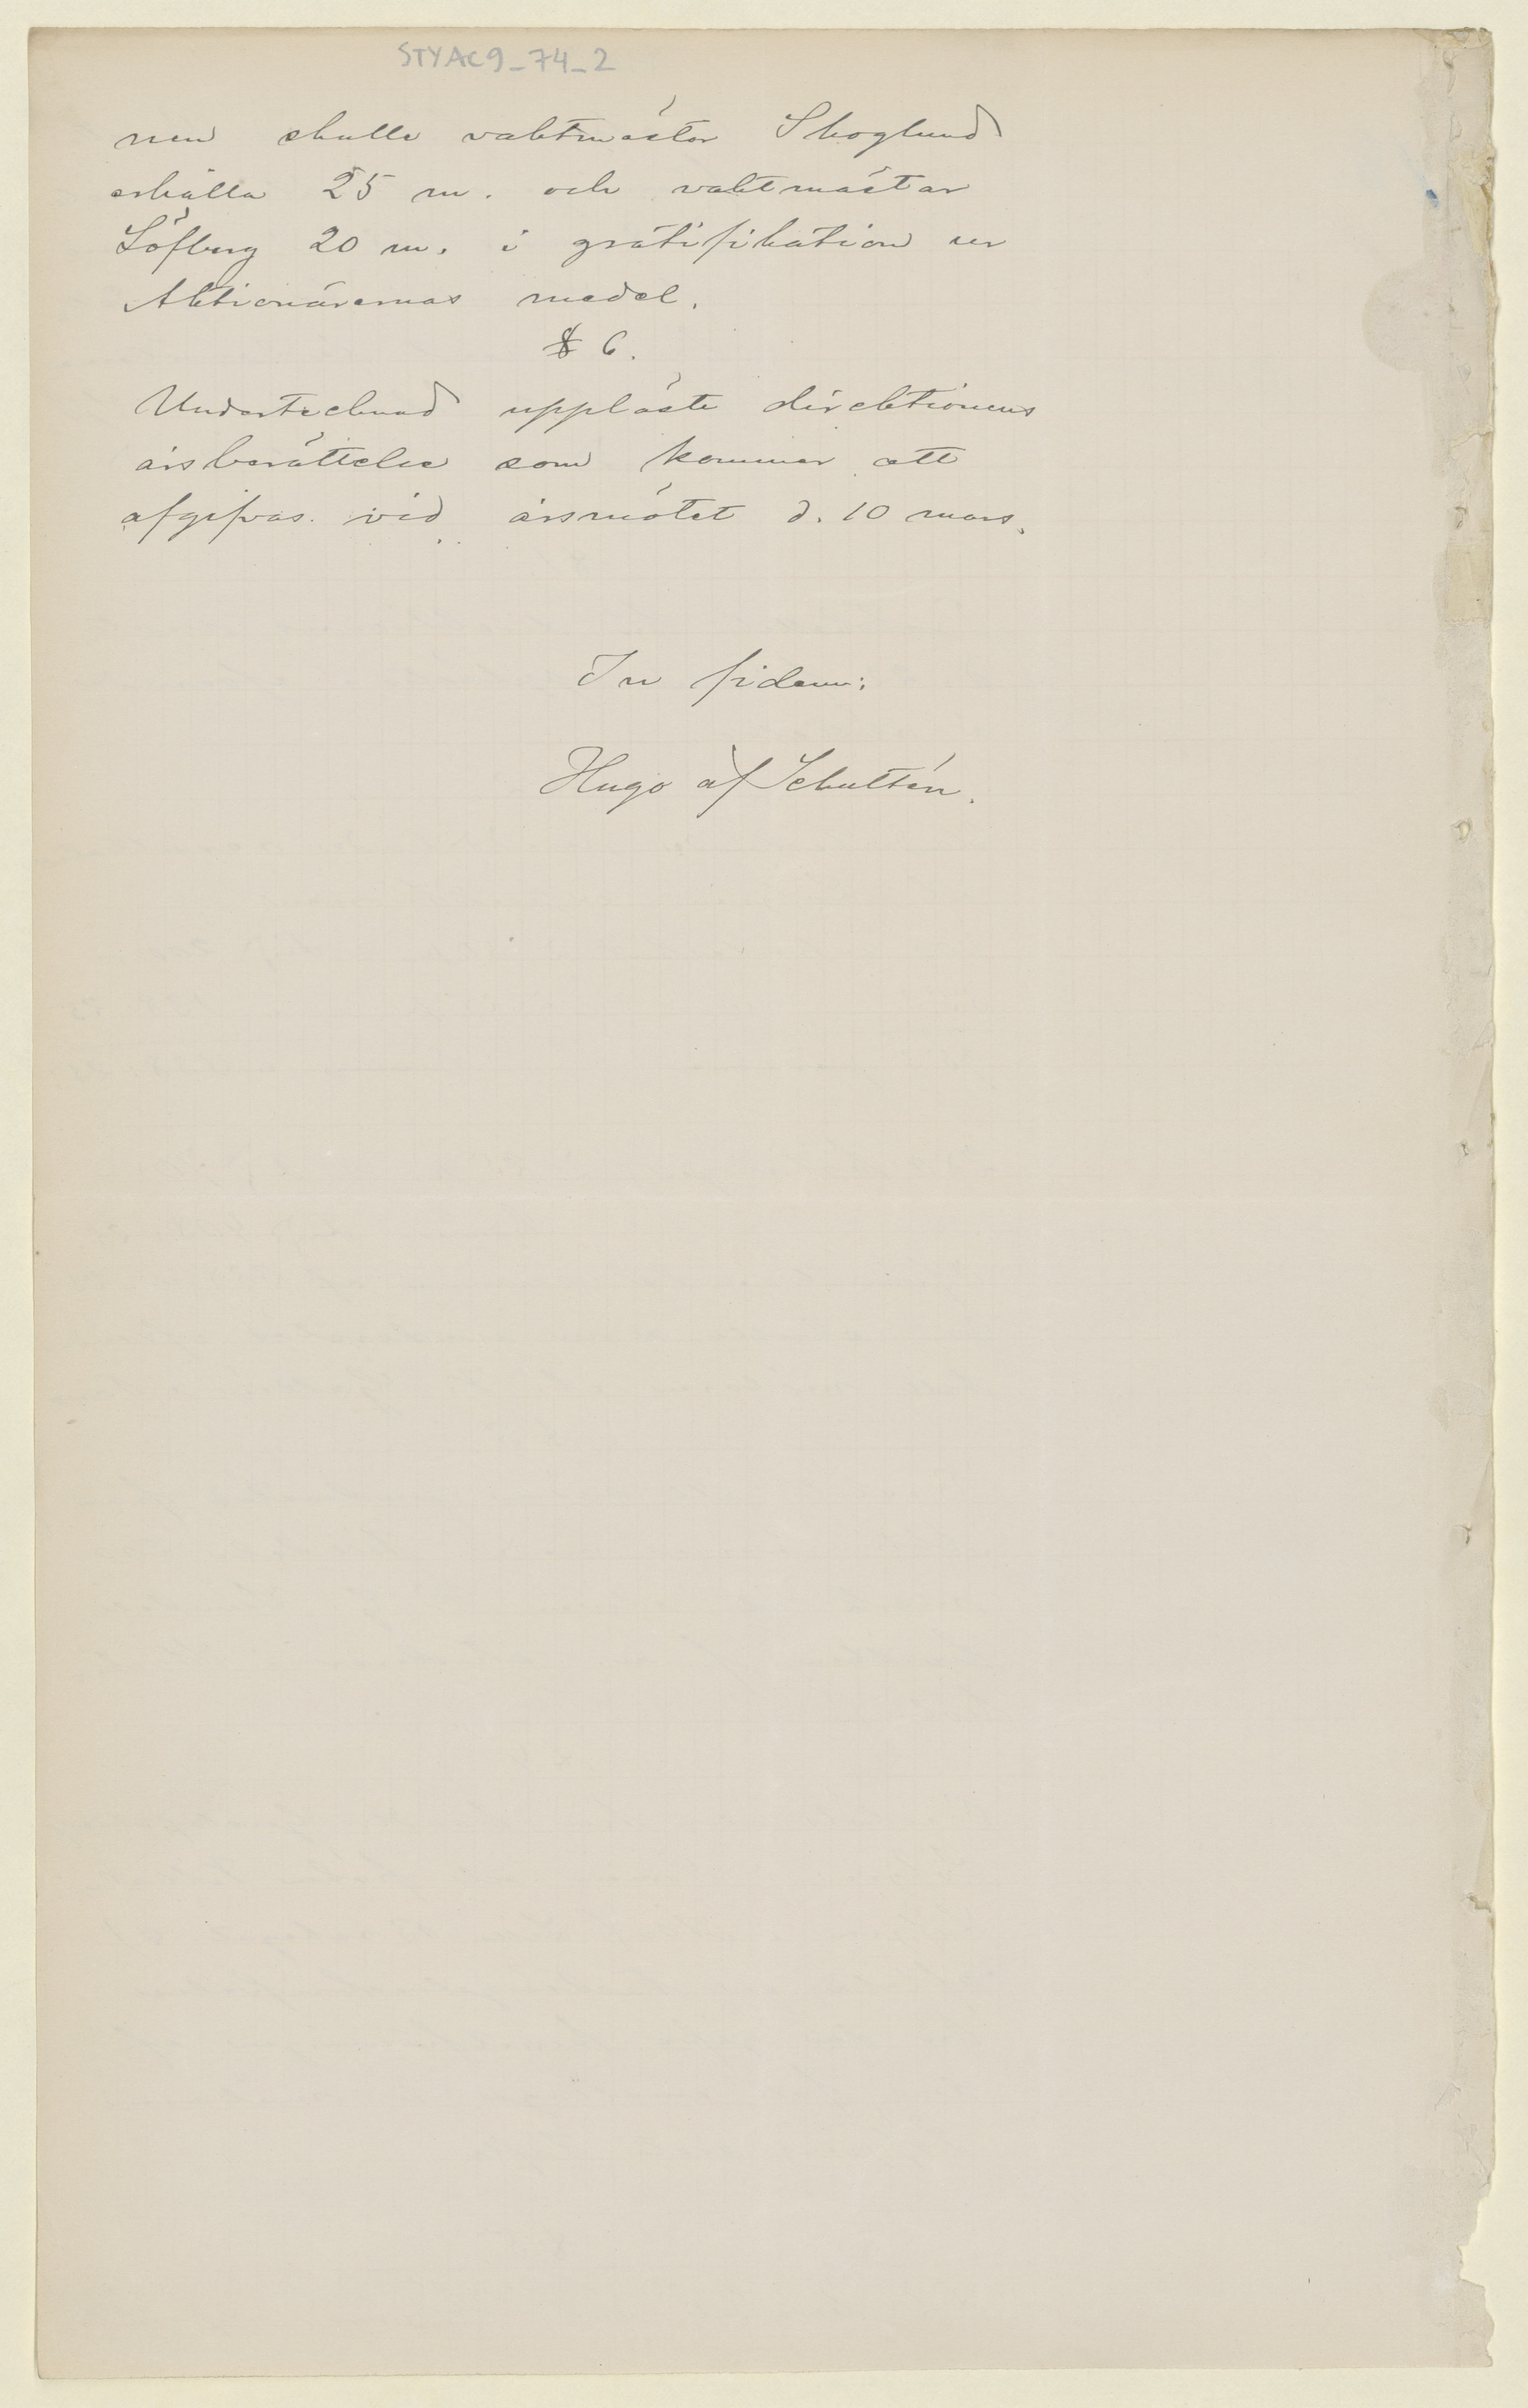 STYAC9_74_2
nen skulle vaktmäster Skoglund
erhålla 25 m. och vaktmästar
Löfberg 20 m. i gratifikation ur
Aktionärernas medel.
§ 6.
Undertecknad uppläste direktionens
årsberättelse som kommer att
afgifvas vid årsmötet d. 10 mars.
In fidem:
Hugo af Schultén.